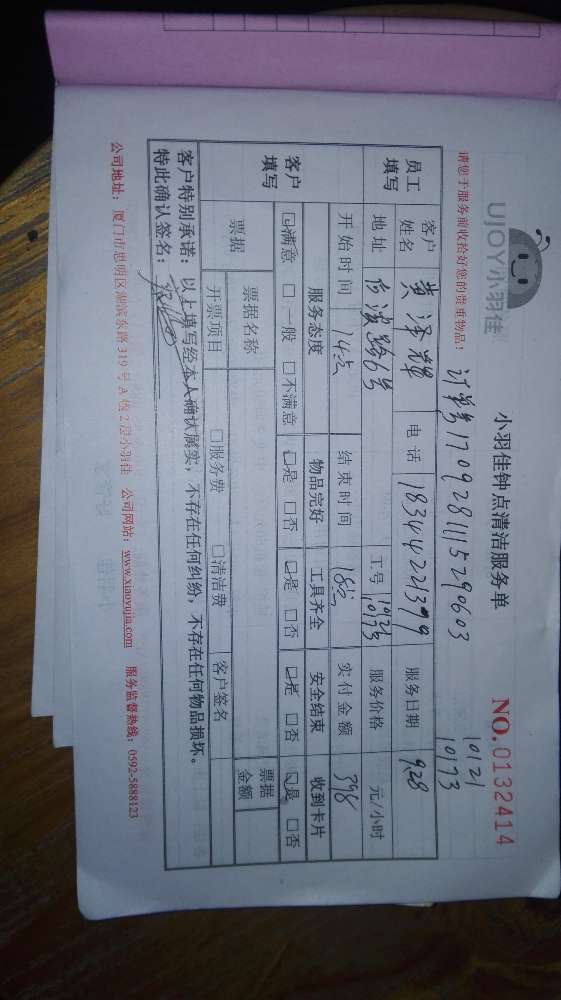 UJOY小羽佳
小羽佳钟点清洁服务单
NO.0132414
请您于服务前收拾好您的贵重物品!
订单号1709281115290603
10121
10173
员工填写
客户姓名 黄泽辉 电话 18344221379 服务日期 9.28
地址 路6号 工号 10121 10173 服务价格 元/小时
开始时间 14点 结束时间 18点 实付金额 398
客户填写
服务态度 物品完好 工具齐全 安全结束 收到卡片
☑满意 □一般 □不满意 ☑是 □否 ☑是 □否 ☑是 □否 ☑是 □否
票据 票据名称 票据金额
开票项目 □服务费 □清洁费 客户签名
客户特别承诺:以上填写经本人确认属实,不存在任何纠纷,不存在任何物品损坏。
特此确认签名:
公司地址:厦门市思明区湖滨东路319号A栋2层小羽佳 公司网站:www.xiaoyujia.com 服务监督热线:0592-5888123